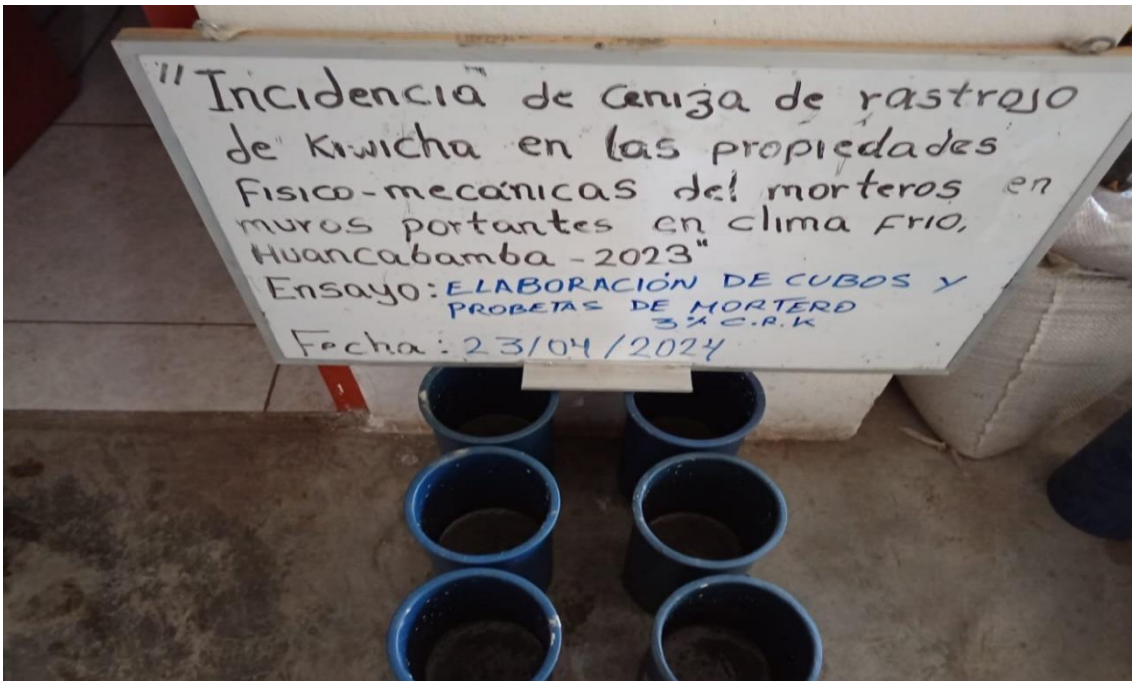 "Incidencia de ceniza de rastrojo
de Kiwicha en las propiedades
Fisico-mecánicas del morteros en
muros portantes en clima Frio,
Huancabamba - 2023"
Ensayo: ELABORACIÓN DE CUBOS Y
PROBETAS DE MORTERO
3% C.R.K
Fecha: 23/04/2024